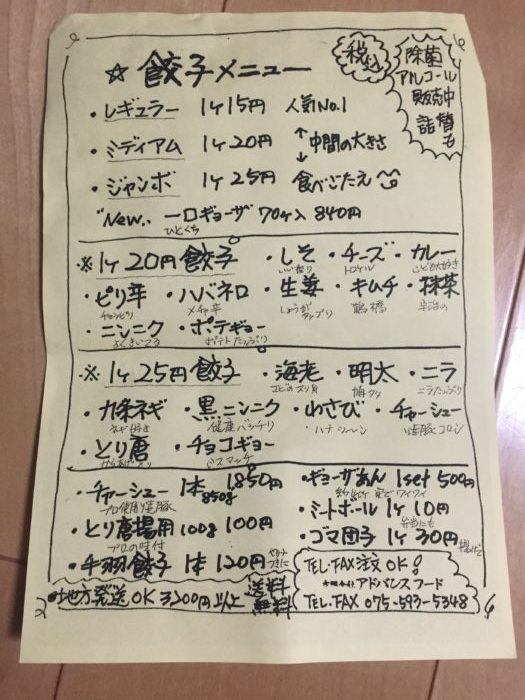 ☆ 餃子メニュー
税込
除菌
アルコール
販売中
詰替
も
・レギュラー 1ヶ15円 人気No.1
・ミディアム 1ヶ20円 ↑中間の大きさ↓
・ジャンボ 1ヶ25円 食べごたえ
"New" 一口ギョーザ 70ヶ入 840円
ひとくち
※1ヶ20円餃子 ・しそ ・チーズ ・カレー
いい香り トロケル こども大好き
・ピリ辛 ・ハバネロ ・生姜 ・キムチ ・抹茶
チョンピリ メチャ辛 しょうがタップリ 鶴橋 宇治の
・ニンニク ・ポテギョー
ポテトたっぷり
※1ヶ25円餃子 ・海老 ・明太 ・ニラ
エビのスリ身 博多 ニラたっぷり
・九条ネギ ・黒ニンニク ・わさび ・チャーシュー
ネギ好き 健康バッチリ ハナツーン 焼豚コロン
・とり唐 ・チョコギョー
ミスマッチ
・チャーシュー 1本 1,850円
850g
プロ使用り焼豚
・とり唐揚用 100g 100円
プロの味付
・手羽餃子 1本 120円
・ギョーザあん 1set 500円
家でワイワイ
・ミートボール 1ヶ10円
弁当にも
・ゴマ団子 1ヶ30円
・地方発送OK 3,200円以上 送料無料
TEL.FAX注文OK!
アドバンスフード
TEL.FAX 075-593-5348